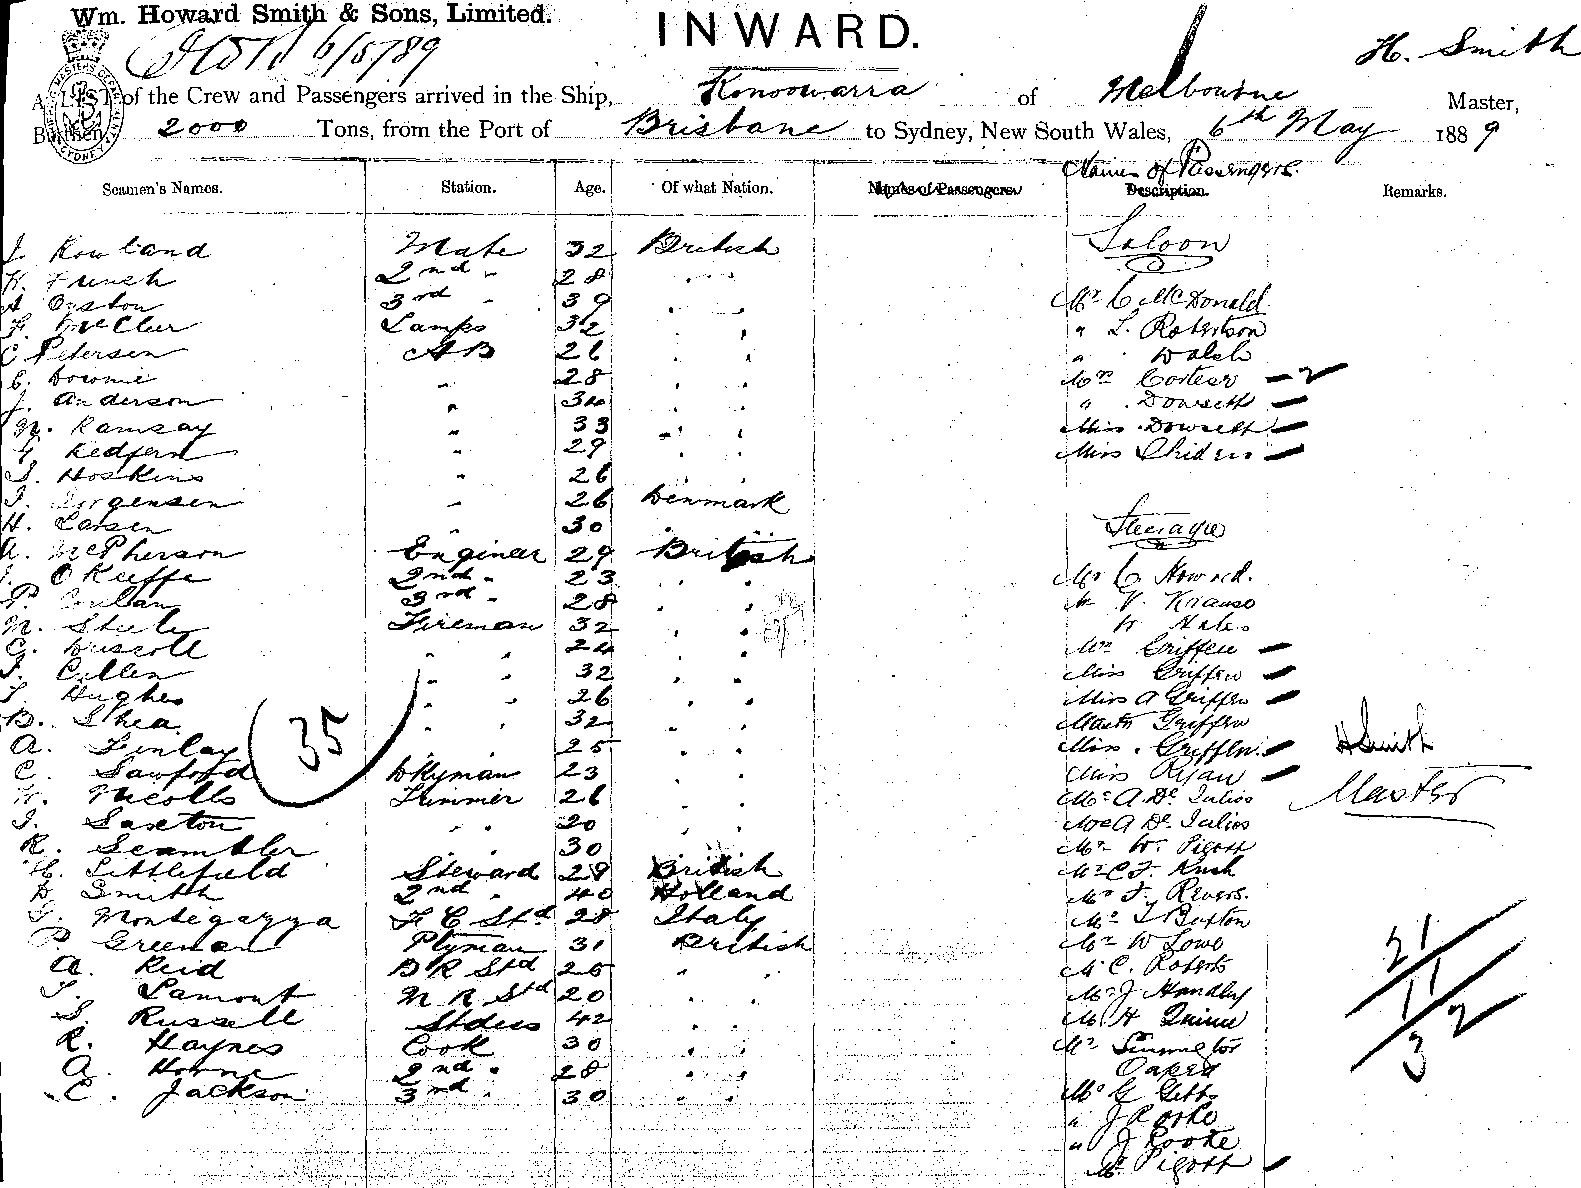 Wm. Howard Smith & Sons, Limited.
INWARD.
6/5/89
H. Smith
A LIST of the Crew and Passengers arrived in the Ship, Konoowarra of Melbourne Master,
Burthen 2000 Tons, from the Port of Brisbane to Sydney, New South Wales, 6th May 1889
Seamen's Names. Station. Age. Of what Nation. Names of Passengers Names of Passengers. Description. Remarks.
J. Rowland Mate 32 British Saloon
H. French 2nd " 28 " "
A Oyston 3rd " 39 " " Mr C McDonald
F. McClur Lamps 32 " " " L. Robertson
C Petersen AB 26 " " " Walsh
C. Downie " 28 " " Mrs Corteser
J. Anderson " 34 " " " Dowsett
N. Ramsay " 33 " " Miss Dowsett
G. Redfern " 29 " " Miss
J. Hoskins " 26
J. Jorgensen " 26 Denmark
H. Larsen " 30 " " Steerage
A. McPherson Enginer 29 British
J. O Keeffe 2nd " 23 " " Mr C Howard.
P. 3rd " 28 " " " V. Krause
N. Steele Fireman 32 " " W Hales
C. Driscoll " " 24 " " Mrs Griffen
J. Cullen " " 32 " " Miss Griffen
T. Hughes " " 26 " " Miss A Griffen
B. Shea " " 32 " " Mastr Griffen
A. Finlay " " 25 " " Miss Griffen
C. Sawford Dkyman 23 " " Miss Ryan
W. Nicolls Trimmer 26 " " Mr A. De Julios
J. Saxton " " 20 " " A De Julios
R. Scambler 30 Mr W. Pigott
H. Littlefield Steward 29 British Mr C F. Rush
D Smith 2nd " 40 Holland Mr F. Revers.
F. Montegazza F C Std 28 Italy Mr Buxton
P. Greenan Ptyman 31 British Mr W Lowe
A. Reid B R Std 25 " " Mr C. Roberts
T. Lamont N R Std 20 " " Mr J Handley
S. Russell Stdess 42 " " Mr H Quinne
R. Haynes Cook 30 " " Mr
A. Horne 2nd " 28 " "
C. Jackson 3rd " 30 " " Mr G Gibbs
" J Rooke
" J Rooke
Pigott
35
H Smith
Master
21
11
32